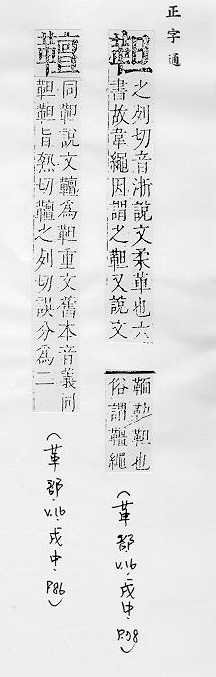 正字通
靼
之列切音浙說文柔革也六
書故韋繩因謂之靼又說文
靼也
俗謂𩍕繩
(革部、v.16、戌中、
𩍕
同靼說文𩍕為靼重文舊本音義同
靼靼旨熱切𩍕之列切誤分為二
(革部、v.16、戌中、P86)